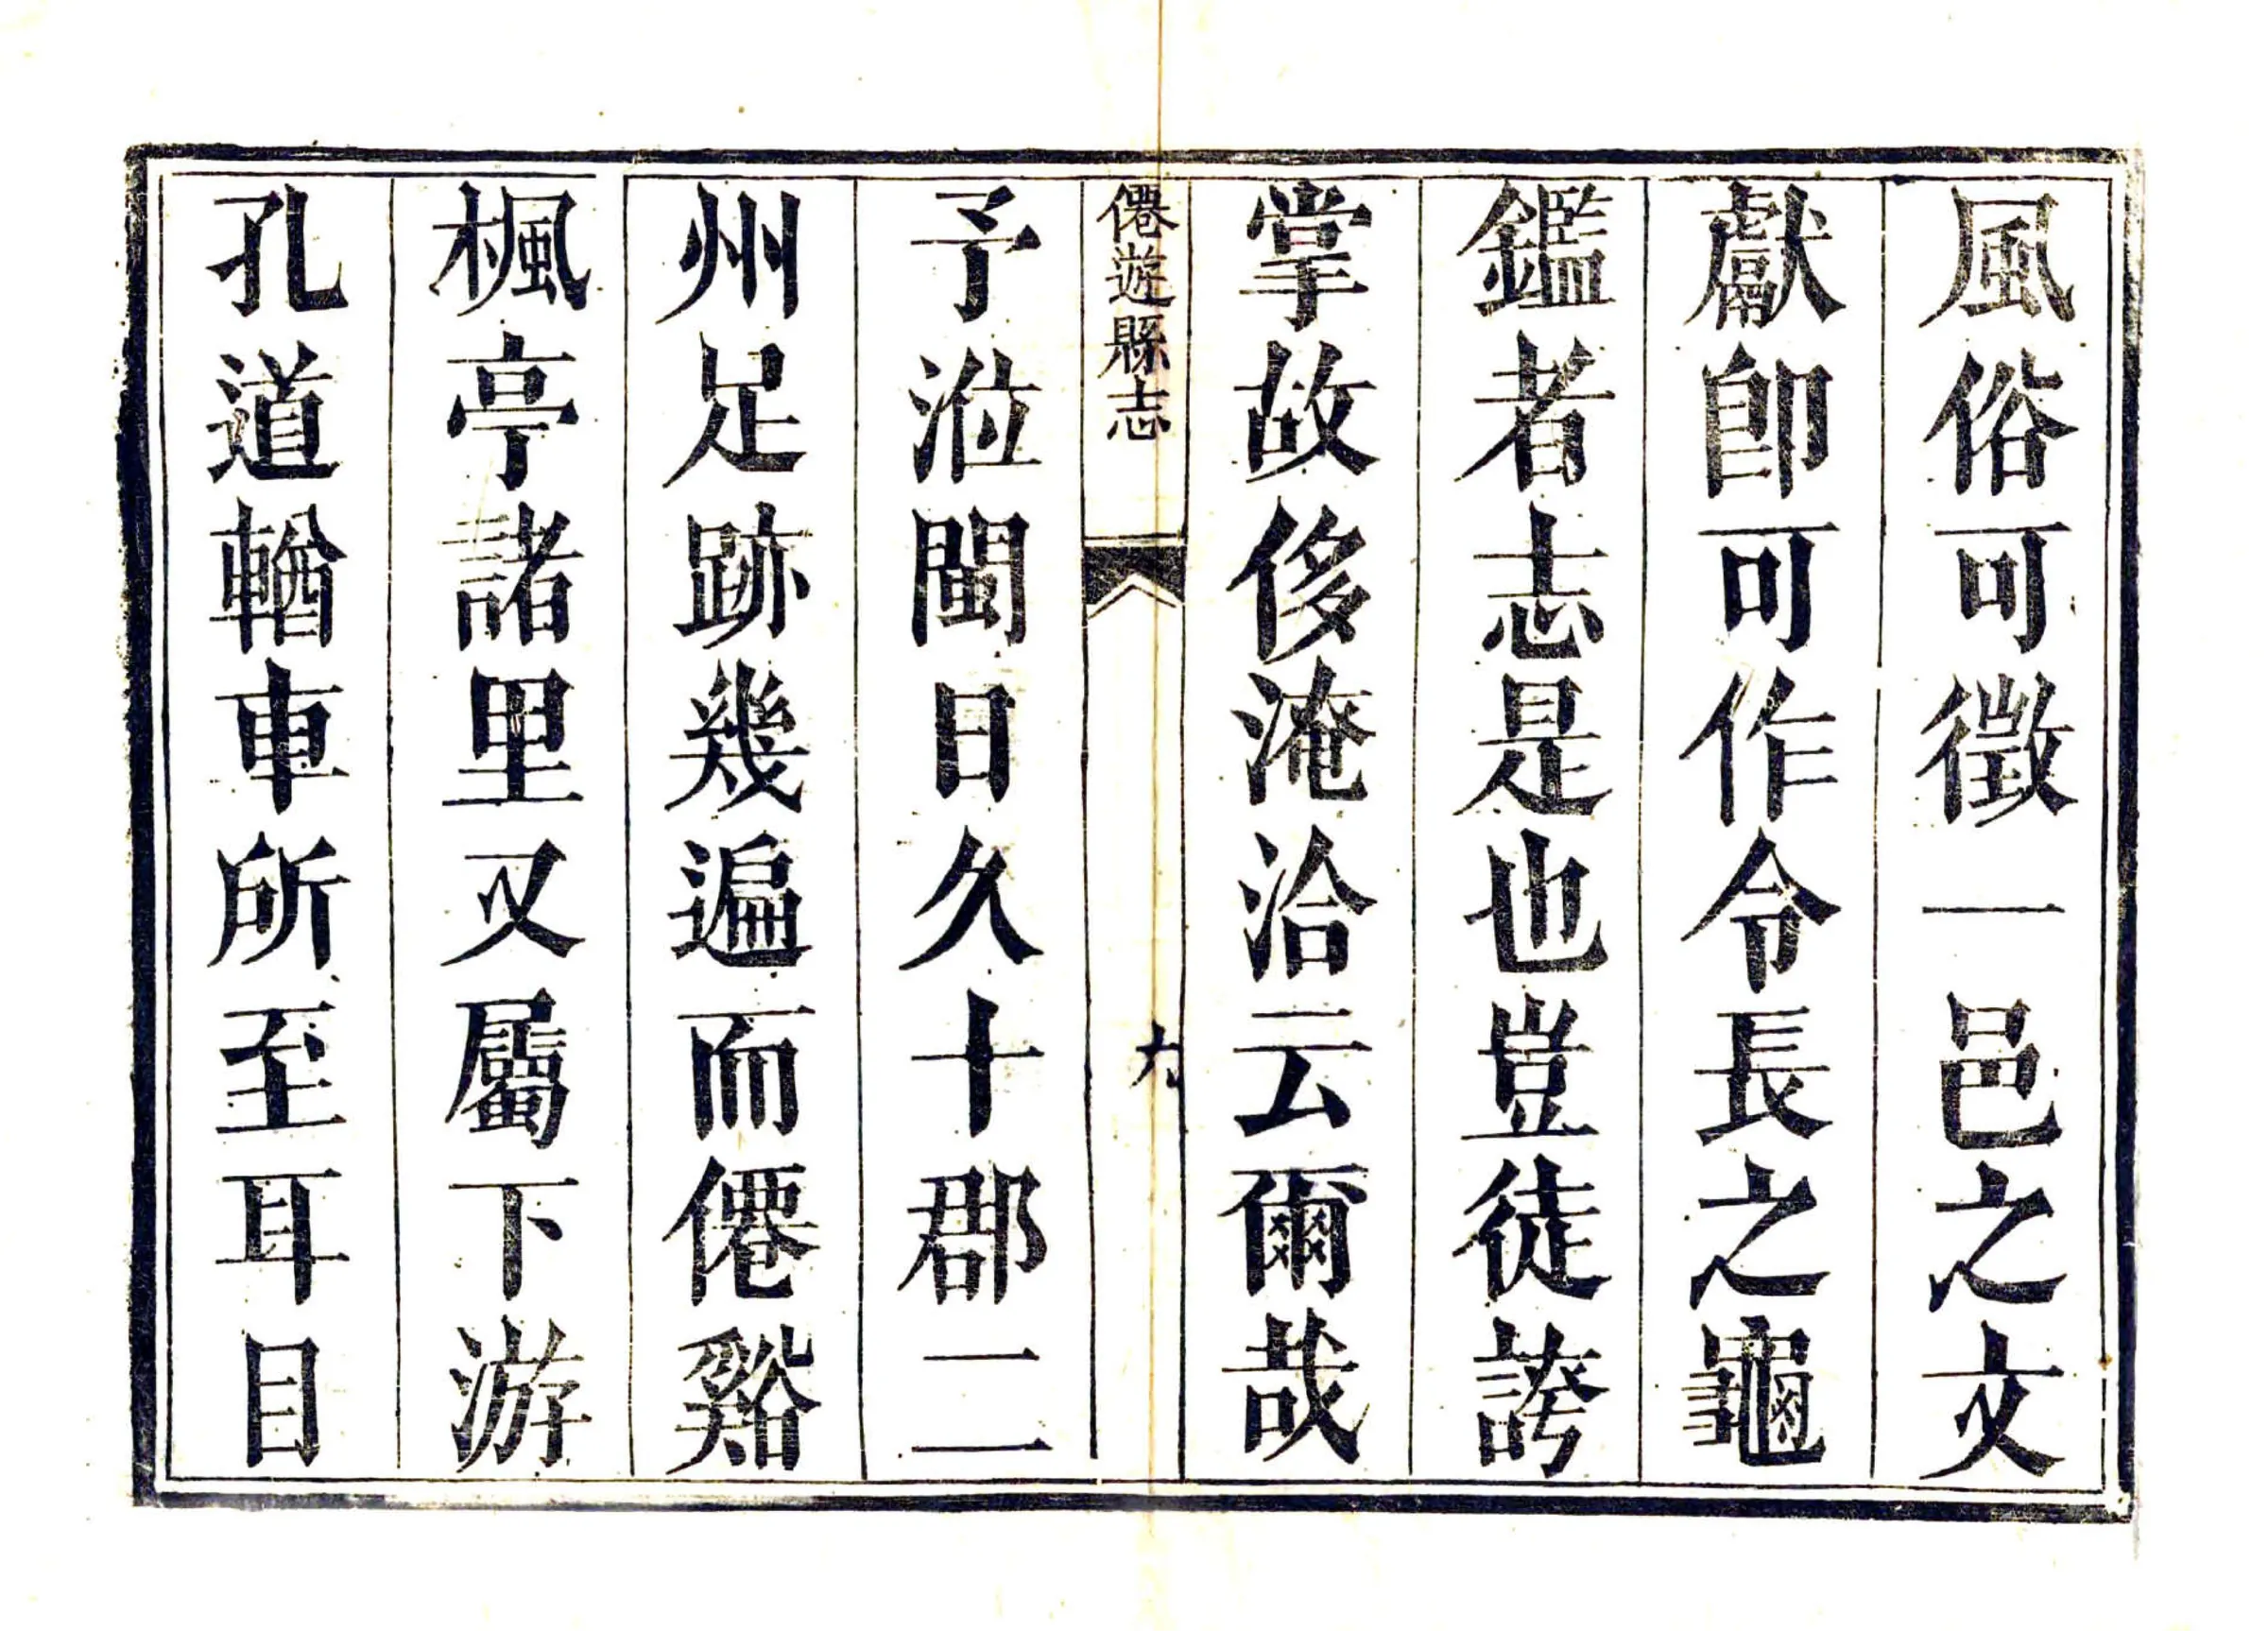 風俗可徵一邑之文
獻卽可作令長之龜
鑑者志是也豈徒誇
掌故侈淹洽云爾哉
僊遊縣志
九
予涖閩日久十郡二
州足跡幾遍而僊谿
楓亭諸里又屬下游
孔道輶車所至耳目